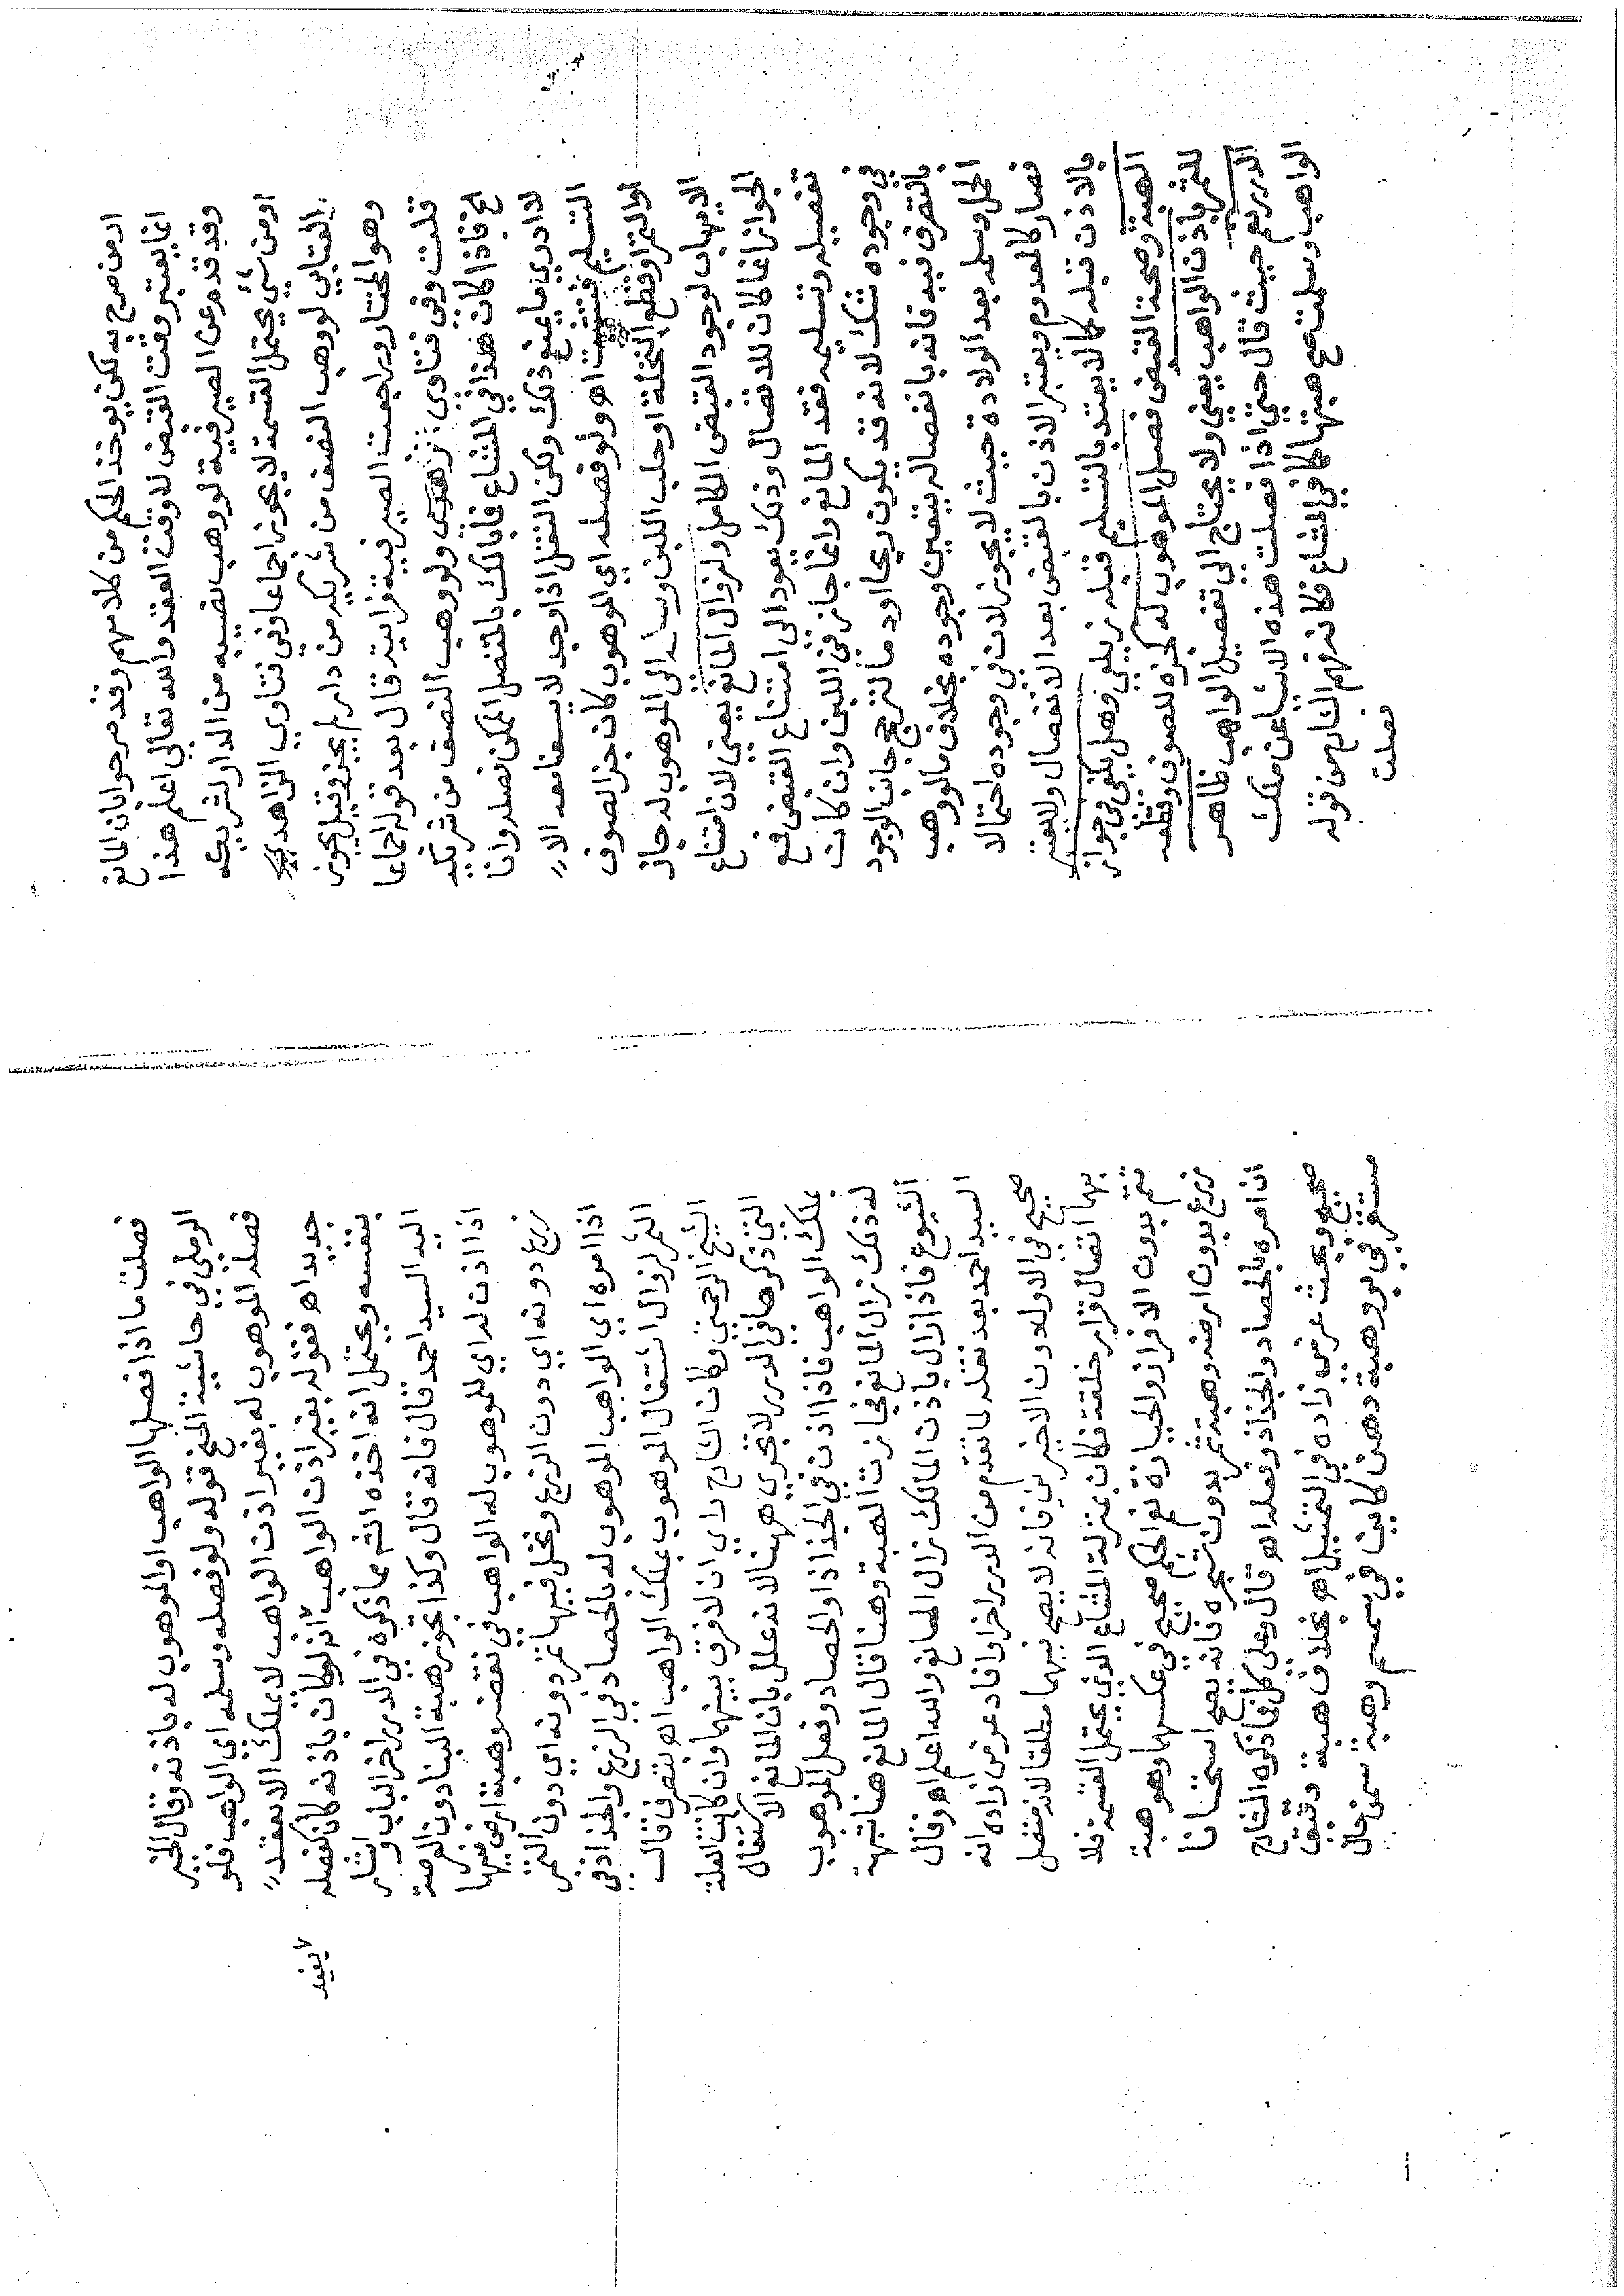 ار من صرح به لكن يوخذ الحكم من كلامهم وقد مر جوابان المانع
انما يعتبر وقت القبض لا وقت العقد والله تعالى اعلم هذا
وقد قدم عن الصيرفية لو وهب نصيبه من الدار لشريكه
او من شيء يحتمل القسمة لا يجوز اجماعا وفي فتاوي الزاهدي
العتابي لو وهب النصف من شريكه من دار لم يجز وقيل يجوز
وهو المختار وراجعت الصيرفية فرايته قال بعد قوله اجماعا
قلت وفي فتاوي ولو وهب النصف من شريكه
الخ فاذا كان هذا في المشاع فما بالك بالمتصل الممكن فصله وانا
لا ادري ما يمنع ذلك ولكن النقل اذا وجد لا يسعنا معه الا
التسليم فتثبت اه ولو فصله اي الموهوب كان جز الصوف
او التمر او قطع النخلة او حلب اللبن وسلمه الى الموهوب له جاز
الايهاب لوجود القبض الكامل ولزوال المانع يعني لان امتناع
الجواز انما كان للاتصال وذلك يعود الى امتناع القبض فمع
تفصيله وتسليمه فقد المانع وانما جاز في اللبن وان كان
في وجوده شك لانه قد يكون ريحا او دما لترجح جانب الوجود
بالتصرف فيه فانه بانفصاله يتعين وجوده بخلاف ما لو وهب
الحمل وسلمه بعد الولادة حيث لا يجوز لان في وجوده احتمالا
فصار كالمعدوم ويعتبر الاذن بالقبض بعد الانفصال ولا يعتبر
بالاذن قبله كما لا يعتد بالتسليم قبله زيلعي وهل يكفي في جواز
الهبة وصحة القبض فصل الموهوب له كجزه للصوف وقطفه
للثمر باذن الواهب يعني ولا يحتاج الى تفصيل الواهب ظاهر
الدرر نعم حيث قال حتى اذا فصلت هذه الاشيا عن ملك
الواهب وسلمت صح هبتها كما في المشاع فكانه فهم الشارح من قوله
فصلت
فصلت ما اذا فصلها الواهب او الموهوب له باذنه وقال الخير
الرملي في حاشية المنح قوله ولو فصله وسلمه اي الواهب فلو
فصله الموهوب له بغير اذن الواهب لا يملك الا بعقد
جديد اه فقوله بغير اذن الواهب انه لو كان باذنه كان كفصله
يفيد
بنفسه ويحتمل انه اخذه الش مما ذكره في الدرر اخر الباب واشار
اليه السيد احمد قال فانه قال وكذا تجوز هبة البنا دون العرصة
اذا اذن له اي للموهوب له الواهب في نقضه وهبة ارض فيها
زرع دونه اي دون الزرع ونخل فيها تمر دونه اي دون التمر
اذا امره اي الواهب الموهوب له بالحصاد في الزرع والجذاذ في
التمر لزوال اشتغال الموهوب بملك الواهب اه بتصرف قال
الشيخ الرحمتي وكان الشارح راي ان لا فرق بينهما وان كانت العلة
التي ذكرها في الدرر لا تجري ههنا لانه علل بان المانع الاشتغال
بملك الواهب فاذا اذن في الجذاذ والحصاد وفعل الموهوب
له ذلك زال المانع فجازت الهبة وهنا قال المانع هنا شبهة
الشيوع فاذا زال باذن المالك زال المانع والله اعلم اه وقال
السيد احمد بعد نقله لما تقدم من الدرر اخرا وافاد عرمي زاده انه
صحيح في الاول دون الاخيرين فانه لا يصح فيهما مطلقا لانه متصل
بهما اتصال قرار خلقة فكان بمنزلة المشاع الذي يحتمل القسمة فلا
تتم بدون الافراز والحيازة نعم الحكم صحيح في عكسها وهو هبة
زرع بدون ارضه وهبة ثمر بدون شجره فانه يصح استحسانا
ان امره بالحصاد والجذاذ وفعله اه قال وعلى كل فما ذكره الشارح
صحيح وبحث عرمي زاده في التمثيل اه بخلاف هبة دقيق
مستقر في بر وهبة دهن كاين في سمسم وهبة سمن حال